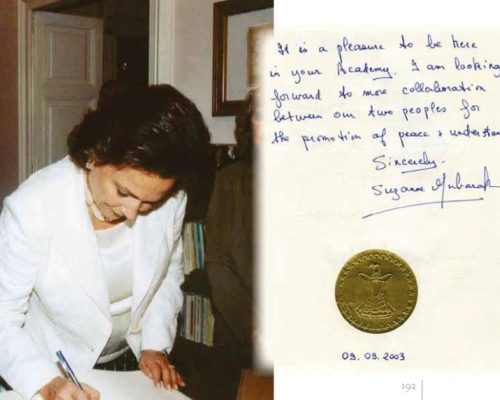 It is a pleasure to be here
in your Academy. I am looking
forward to more collaboration
between our two peoples for
the promotion of peace &
Sincerely.
Suzanne Mubarak
09. 09. 2003
192